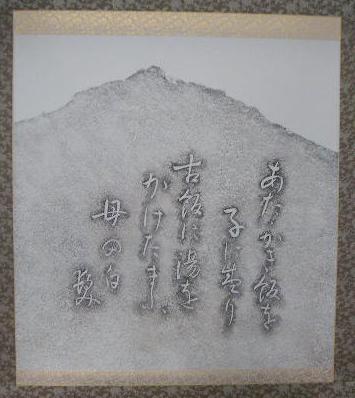 あたゝかき飯を
子に盛り
古飯に湯を
かけたまふ
母の白
髪